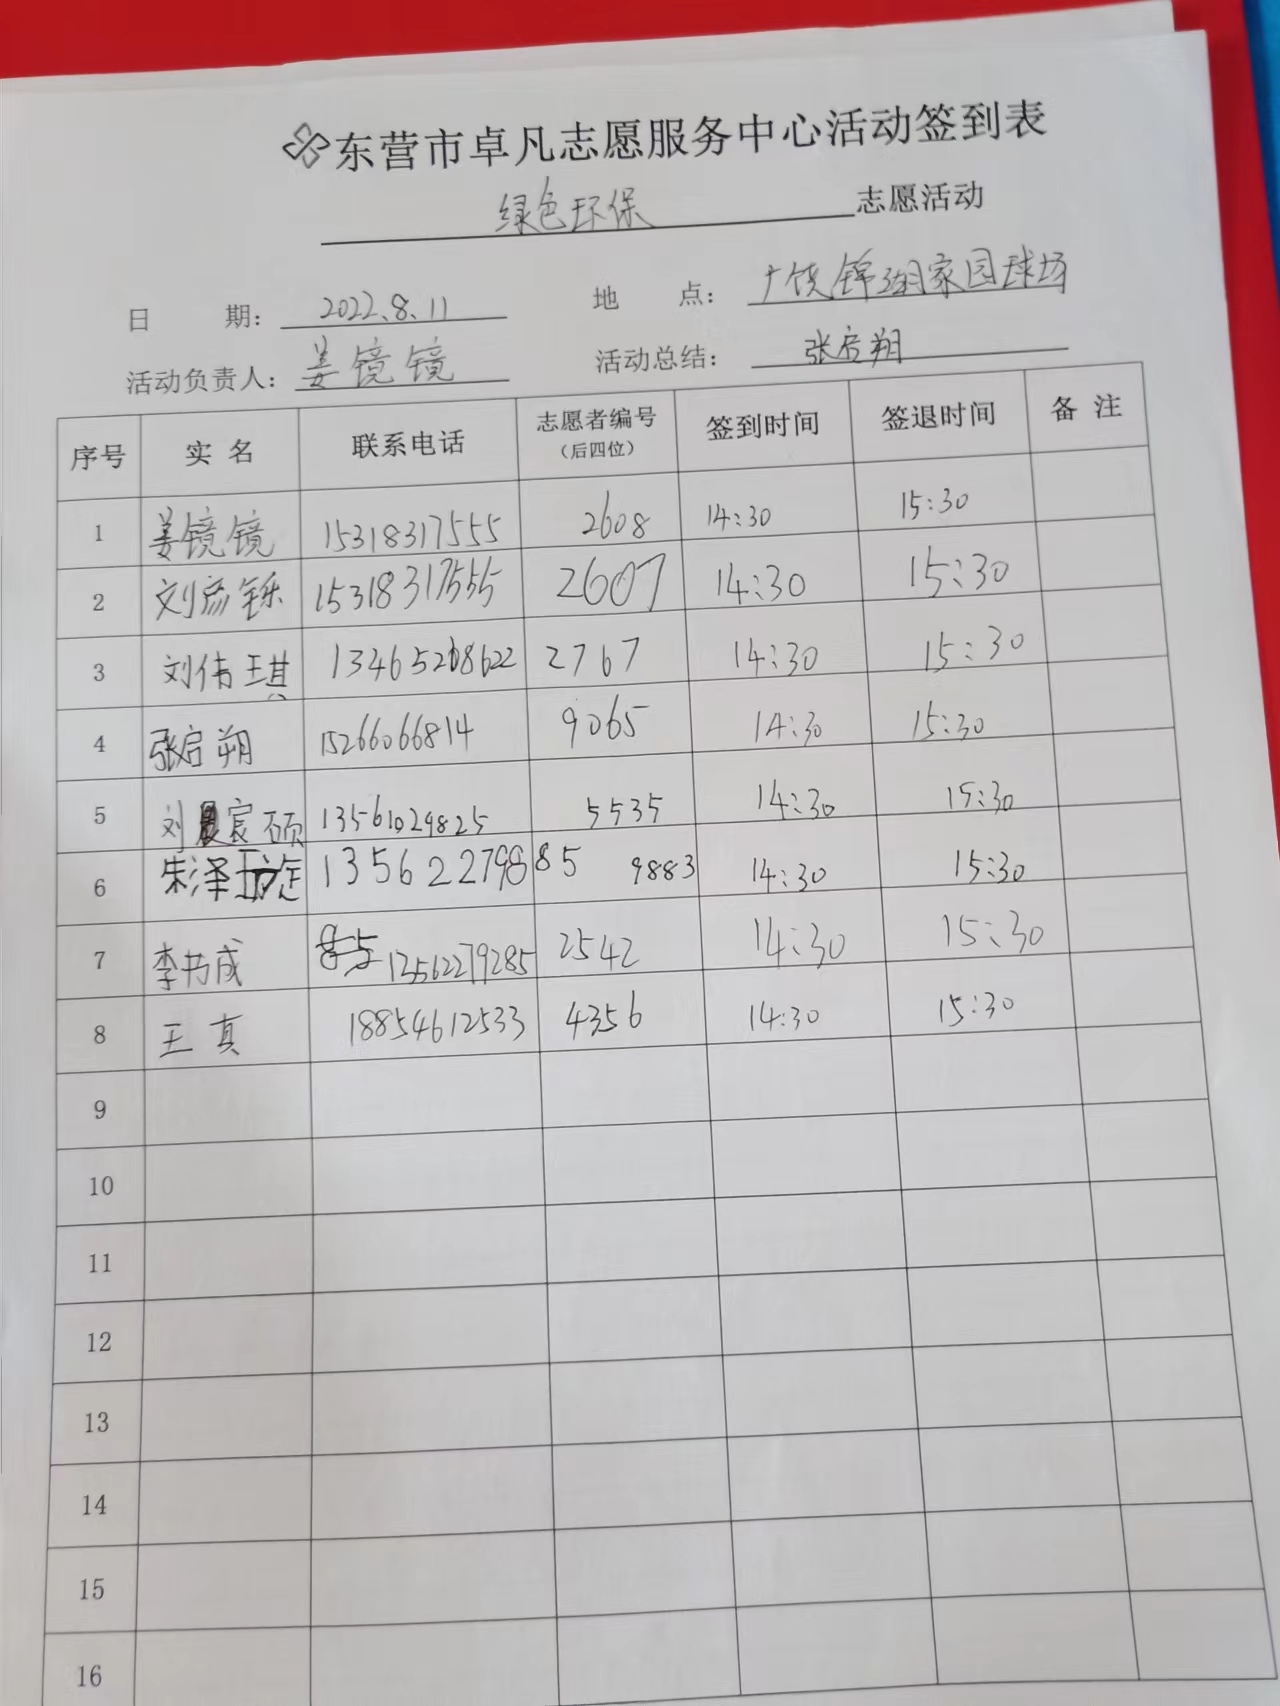 东营市卓凡志愿服务中心活动签到表
绿色环保 志愿活动
日 期: 2022.8.11 地 点: 广饶锦湖家园球场
活动负责人: 姜镜镜 活动总结: 张启翔
序号 实 名 联系电话 志愿者编号(后四位) 签到时间 签退时间 备 注
1 姜镜镜 15318317555 2608 14:30 15:30
2 刘彦铄 15318317555 2607 14:30 15:30
3 刘伟琪 13465208622 2767 14:30 15:30
4 张启翔 15266066814 9065 14:30 15:30
5 刘宸硕 13561029825 5535 14:30 15:30
6 朱泽璇 13562279885 9883 14:30 15:30
7 李书成 13562279285 2542 14:30 15:30
8 王真 18854612533 4356 14:30 15:30
9
10
11
12
13
14
15
16